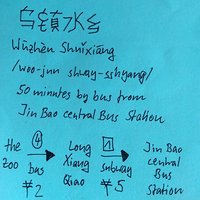 乌镇水乡
Wūzhèn Shuǐxiāng
/woo-jun shway-sshyang/
50 minutes by bus from
Jin Bao central Bus Station
the zoo ④ bus #2 → Long Xiang Qiao 1 subway #5 → Jin Bao central Bus Station